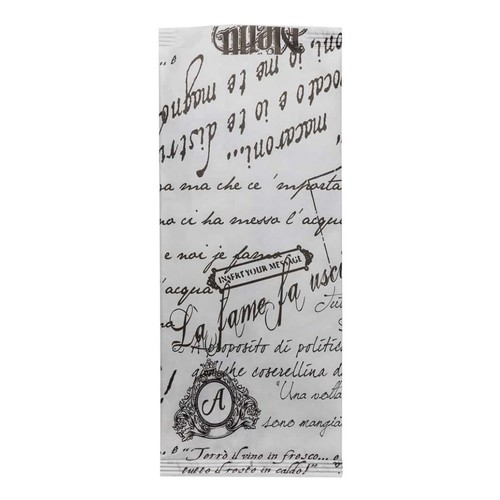 Menu
...io me te magno
...ocato e io te distr
macaroni...
a ma che ce' importa
no ci ha messo l'acqua
e noi je famo
l'acqua
INSERT YOUR MESSAGE
La fame fa usci
A proposito di politic
qualche coserellina d
"Una volta
A
sono mangia
"Terrò il vino in fresco...
tutto il resto in caldo!"